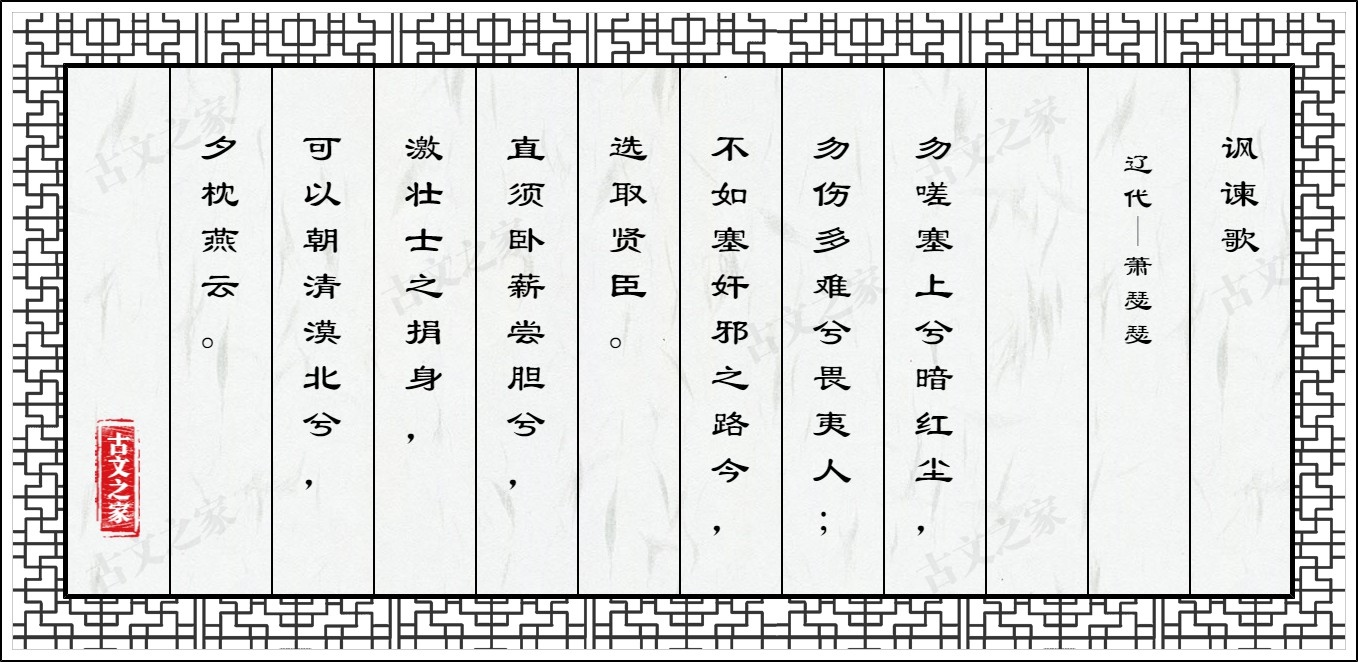 讽谏歌
辽代——萧瑟瑟
勿嗟塞上兮暗红尘，
勿伤多难兮畏夷人；
不如塞奸邪之路今，
选取贤臣。
直须卧薪尝胆兮，
激壮士之捐身，
可以朝清漠北兮，
夕枕燕云。
古文之家